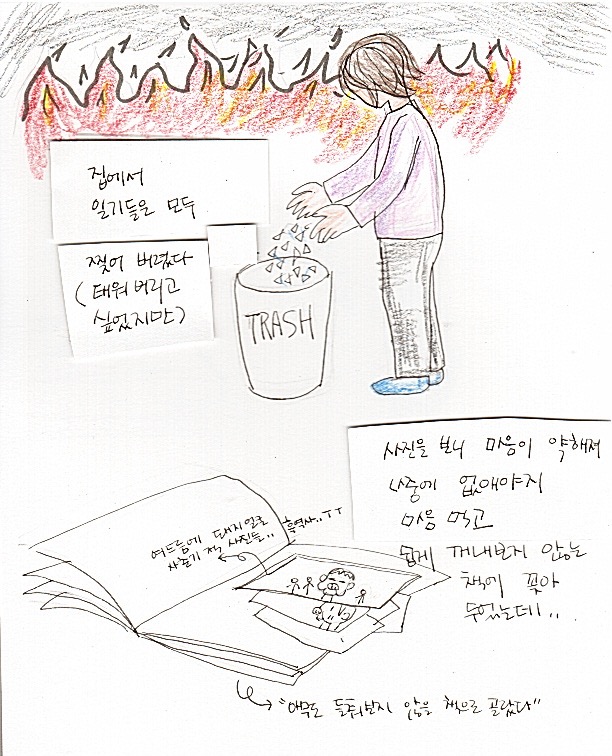 집에서
일기들은 모두
찢어 버렸다
(태워버리고
싶었지만)
TRASH
사진을 보니 마음이 약해져
나중에 없애야지
마음 먹고
쉽게 꺼내보지 않는
책에 꽂아
두었는데..
여드름에 돼지얼굴
사춘기 적 사진들.. 흑역사..ㅜㅜ
"아무도 들춰보지 않을 책으로 골랐다"